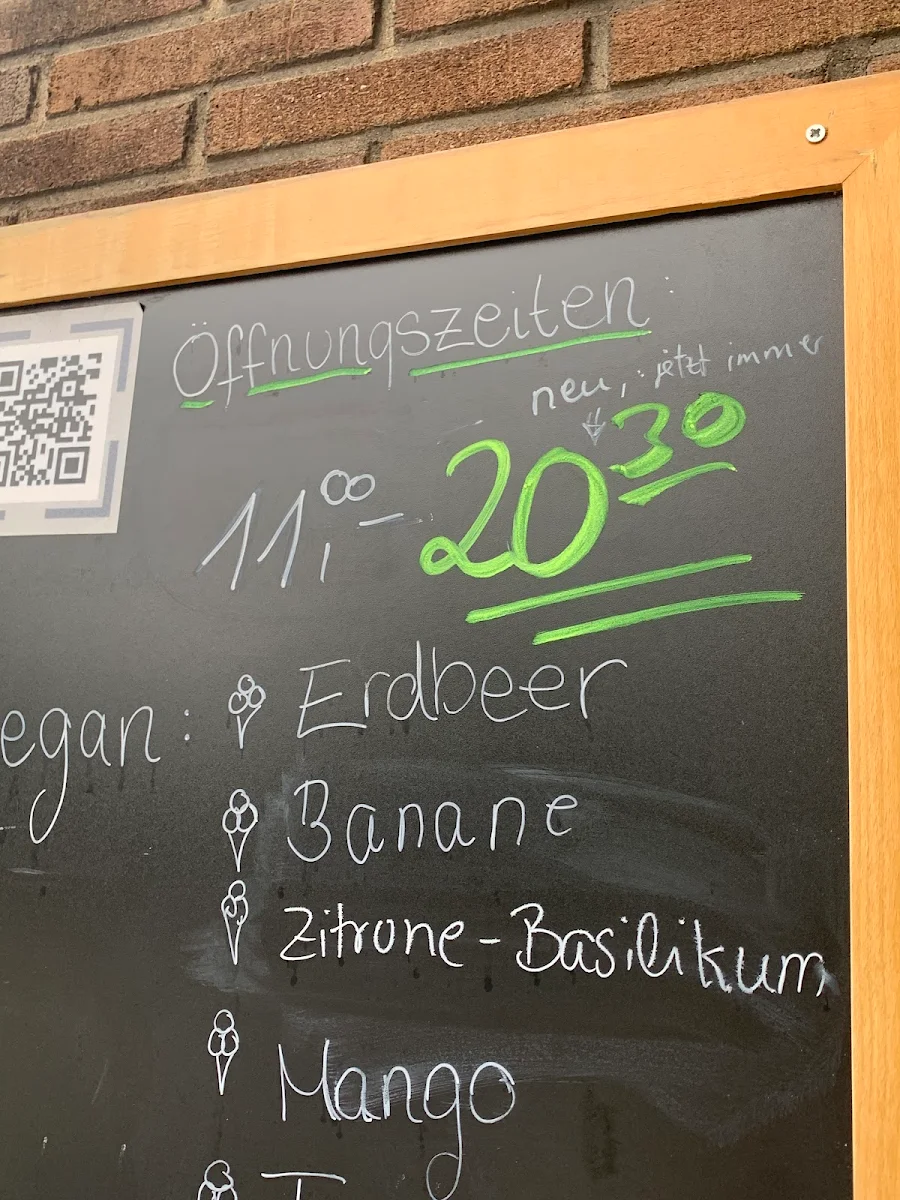 Öffnungszeiten:
neu, jetzt immer
11,00 - 20 30
egan: Erdbeer
Banane
Zitrone-Basilikum
Mango